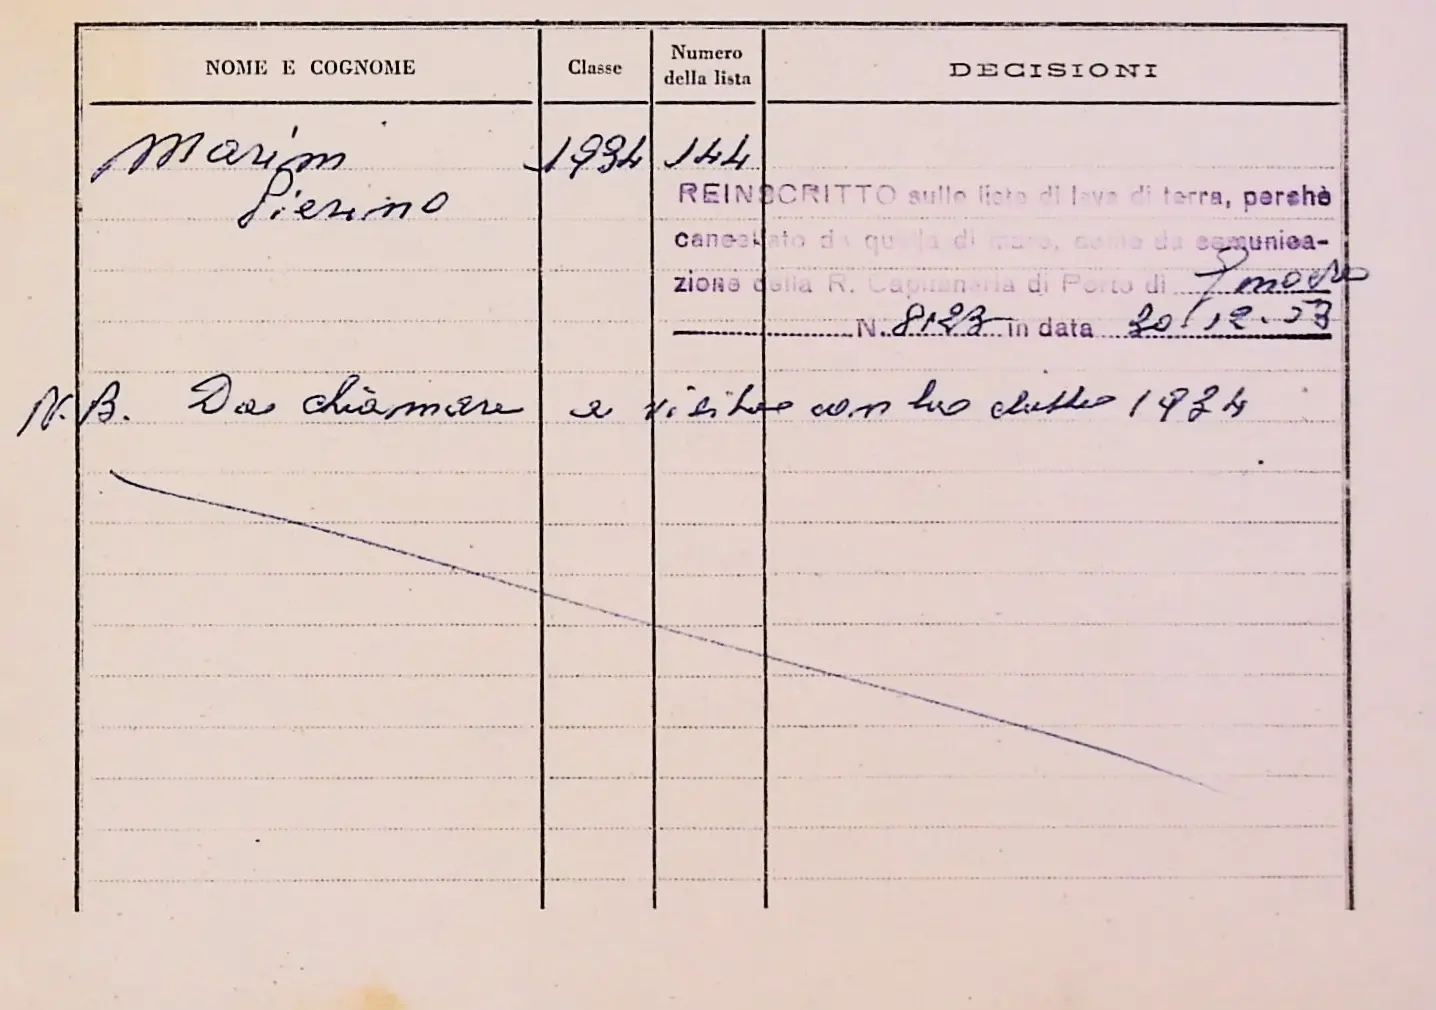 NOME E COGNOME Classe Numero della lista DECISIONI
Marin 1934 144
Pierino
REINSCRITTO sulle liste di leva di terra, perchè
cancellato da quella di mare, come da comunica-
zione della R. Capitaneria di Porto di
N. 8123 in data 30.12.53
N.B. Da chiamare a visita con la classe 1934